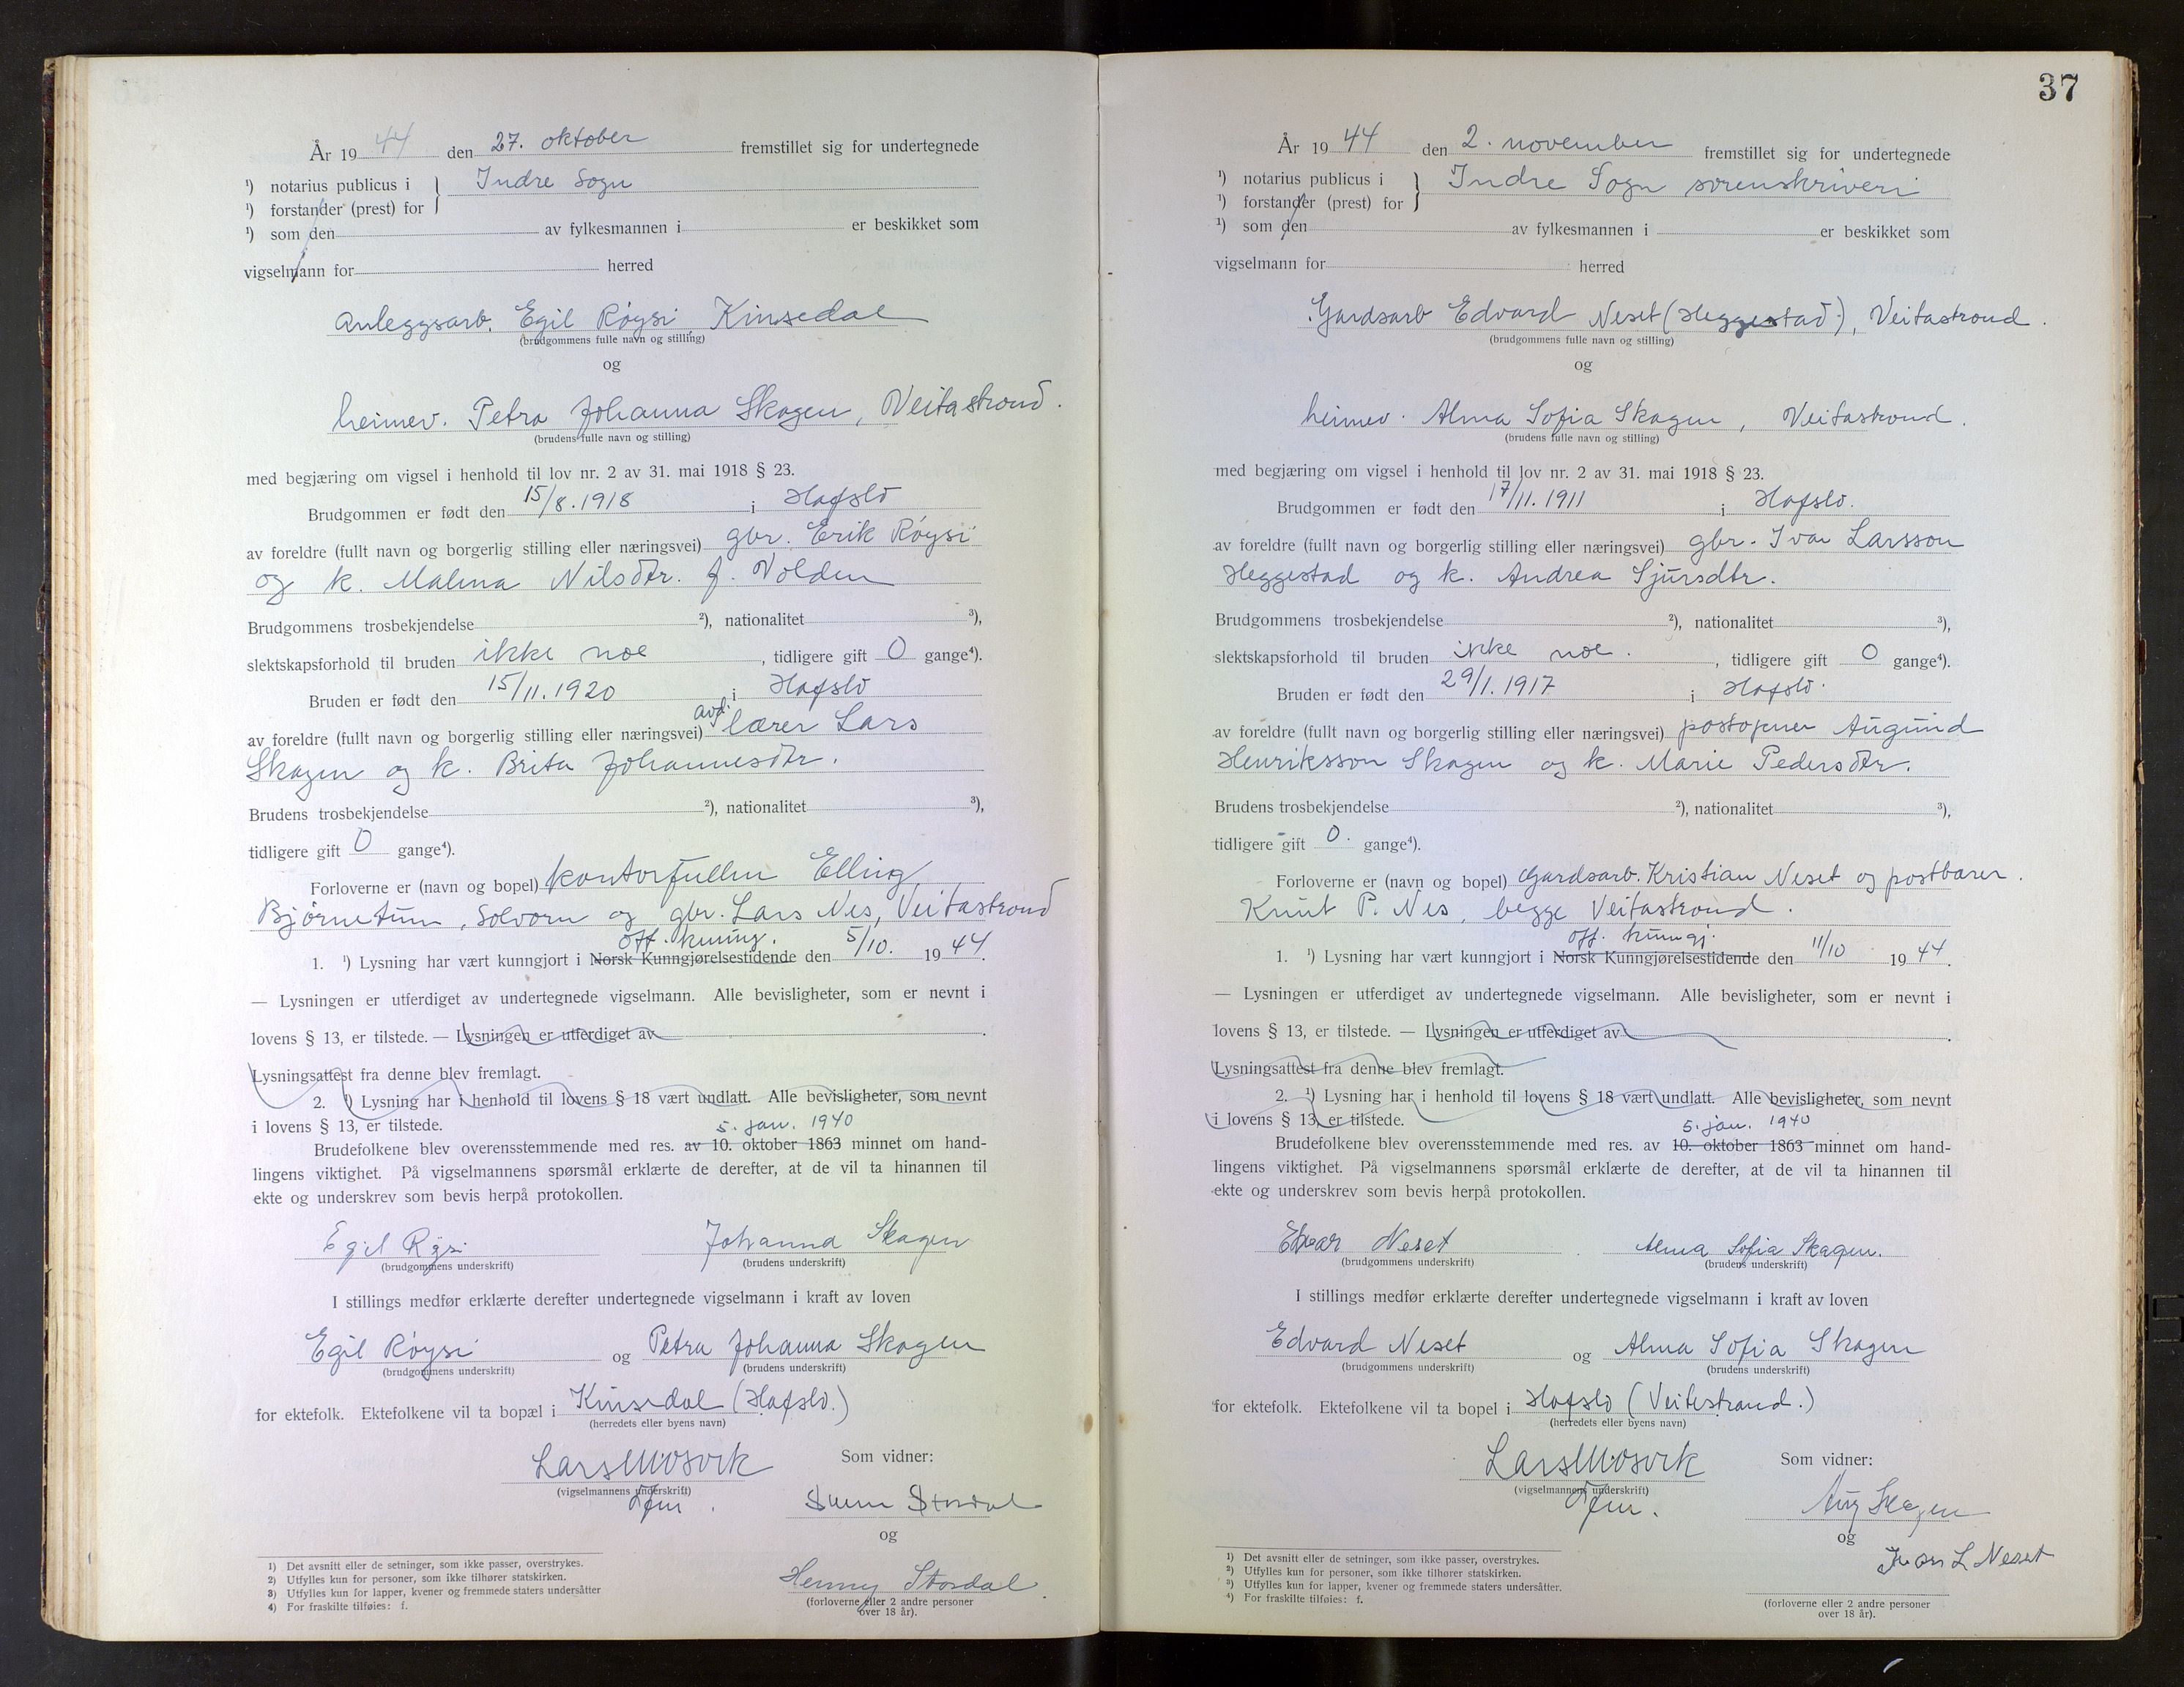 År 1944 den 27. oktober fremstillet sig for undertegnede
¹) notarius publicus i } Indre Sogn
¹) forstander (prest) for
¹) som den av fylkesmannen i er beskikket som
vigselmann for herred
Anleggsarb. Egil Røysi, Kinsedal
(brudgommens fulle navn og stilling)
og
heimev. Petra Johanna Skagen, Veitastrond.
(brudens fulle navn og stilling)
med begjæring om vigsel i henhold til lov nr. 2 av 31. mai 1918 § 23.
Brudgommen er født den 15/8.1918 i Hafslo
av foreldre (fullt navn og borgerlig stilling eller næringsvei) gbr. Erik Røysi
og k. Malena Nilsdtr. f. Volden
Brudgommens trosbekjendelse ²), nationalitet ³),
slektskapsforhold til bruden ikke noe, tidligere gift 0 gange⁴).
Bruden er født den 15/11.1920 i Hafslo
av foreldre (fullt navn og borgerlig stilling eller næringsvei) avd. lærer Lars
Skagen og k. Brita Johannesdtr.
Brudens trosbekjendelse ²), nationalitet ³),
tidligere gift 0 gange⁴).
Forloverne er (navn og bopel) kontorfullm Elling
Bjørnetun, Solvorn og gbr. Lars Nes, Veitastrond
off. kunng.
1. ¹) Lysning har vært kunngjort i Norsk Kunngjørelsestidende den 5/10. 1944.
— Lysningen er utferdiget av undertegnede vigselmann. Alle bevisligheter, som er nevnt i
lovens § 13, er tilstede. — Lysningen er utferdiget av
Lysningsattest fra denne blev fremlagt.
2. ¹) Lysning har i henhold til lovens § 18 vært undlatt. Alle bevisligheter, som nevnt
i lovens § 13, er tilstede.
5. jan. 1940
Brudefolkene blev overensstemmende med res. av 10. oktober 1863 minnet om hand-
lingens viktighet. På vigselmannens spørsmål erklærte de derefter, at de vil ta hinannen til
ekte og underskrev som bevis herpå protokollen.
Egil Røysi Johanna Skagen
(brudgommens underskrift) (brudens underskrift)
I stillings medfør erklærte derefter undertegnede vigselmann i kraft av loven
Egil Røysi og Petra Johanna Skagen
(brudgommens underskrift) (brudens underskrift)
for ektefolk. Ektefolkene vil ta bopæl i Kinsedal (Hafslo.)
(herredets eller byens navn)
Lars Mosvik Som vidner:
(vigselmannens underskrift)
Stordal
og
Henny Stordal
(forloverne eller 2 andre personer
over 18 år).
1) Det avsnitt eller de setninger, som ikke passer, overstrykes.
2) Utfylles kun for personer, som ikke tilhører statskirken.
3) Utfylles kun for lapper, kvener og fremmede staters undersåtter
4) For fraskilte tilføies: f.
37
År 1944 den 2. november fremstillet sig for undertegnede
¹) notarius publicus i } Indre Sogn sorenskriveri
¹) forstander (prest) for
¹) som den av fylkesmannen i er beskikket som
vigselmann for herred
Gardsarb Edvard Neset (Heggestad), Veitastrond.
(brudgommens fulle navn og stilling)
og
heimev. Alma Sofia Skagen, Veitastrond.
(brudens fulle navn og stilling)
med begjæring om vigsel i henhold til lov nr. 2 av 31. mai 1918 § 23.
Brudgommen er født den 17/11.1911 i Hafslo.
av foreldre (fullt navn og borgerlig stilling eller næringsvei) gbr. Ivar Larsson
Heggestad og k. Andrea Sjursdtr.
Brudgommens trosbekjendelse ²), nationalitet ³),
slektskapsforhold til bruden ikke noe., tidligere gift 0 gange⁴).
Bruden er født den 29/1.1917 i Hafslo.
av foreldre (fullt navn og borgerlig stilling eller næringsvei) postopner Augund
Henriksson Skagen og k. Marie Pedersdtr.
Brudens trosbekjendelse ²), nationalitet ³),
tidligere gift 0. gange⁴).
Forloverne er (navn og bopel) Gardsarb. Kristian Neset og postbærer.
Knut P. Nes, begge Veitastrond.
off. kunngj.
1. ¹) Lysning har vært kunngjort i Norsk Kunngjørelsestidende den 11/10 1944.
— Lysningen er utferdiget av undertegnede vigselmann. Alle bevisligheter, som er nevnt i
lovens § 13, er tilstede. — Lysningen er utferdiget av
Lysningsattest fra denne blev fremlagt.
2. ¹) Lysning har i henhold til lovens § 18 vært undlatt. Alle bevisligheter, som nevnt
i lovens § 13, er tilstede.
5. jan. 1940
Brudefolkene blev overensstemmende med res. av 10. oktober 1863 minnet om hand-
lingens viktighet. På vigselmannens spørsmål erklærte de derefter, at de vil ta hinannen til
ekte og underskrev som bevis herpå protokollen.
Neset Alma Sofia Skagen.
(brudgommens underskrift) (brudens underskrift)
I stillings medfør erklærte derefter undertegnede vigselmann i kraft av loven
Edvard Neset og Alma Sofia Skagen
(brudgommens underskrift) (brudens underskrift)
for ektefolk. Ektefolkene vil ta bopel i Hafslo (Veitestrand.)
(herredets eller byens navn)
Lars Mosvik Som vidner:
(vigselmannens underskrift)
Aug Skagen
og
Ivar L Neset
(forloverne eller 2 andre personer
over 18 år).
1) Det avsnitt eller de setninger, som ikke passer, overstrykes.
2) Utfylles kun for personer, som ikke tilhører statskirken.
3) Utfylles kun for lapper, kvener og fremmede staters undersåtter.
4) For fraskilte tilføies: f.